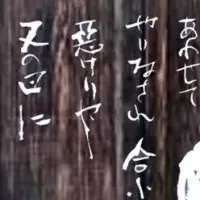 あわせて
やりなされ 合ふ
惡けりや
又の日に